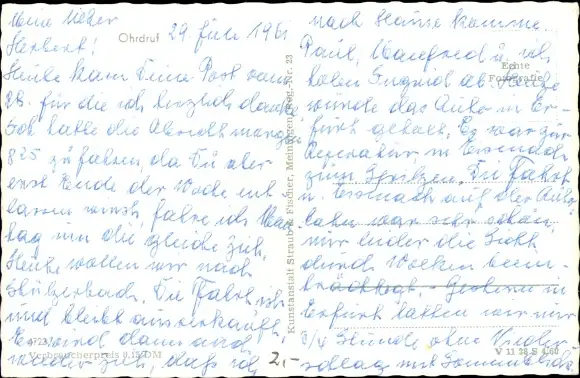 Mein lieber
Herbert!
Ohrdruf 29. Juli 1961
Heute kam Deine Post vom
28. für die ich herzlich danke
Ich hatte die Absicht morgen
8²⁵ zu fahren, da Du aber
erst Ende der Woche ent
lassen wirst, fahre ich
tag um die gleiche Zeit.
Heute wollen wir nach
Stützerbach. Die Fahrt
und bleibt ausverkauft
Es wird dann auch
wieder Zeit, daß ich
nach Hause komme.
Paul, Manfred u. ich
holen Ingrid ab. Heute
wurde das Auto in Er-
furt geholt. Es war zur
Reparatur, in Eisenach
zum Spritzen. Die Fahrt
n. Eisenach auf der Auto
bahn war sehr schön,
nur leider die Sicht
durch Wolken beein-
trächtigt. Gestern in
Erfurt hatten wir nur
3/4 Stunde ohne Nieder-
schlag mit Sonnenblick
Echte
Fotografie
Kunstanstalt Straub & Fischer, Meiningen, Reg.-Nr. 23
4723
Verbraucherpreis 0,15 DM
2,-
V 11 28 S 4/60